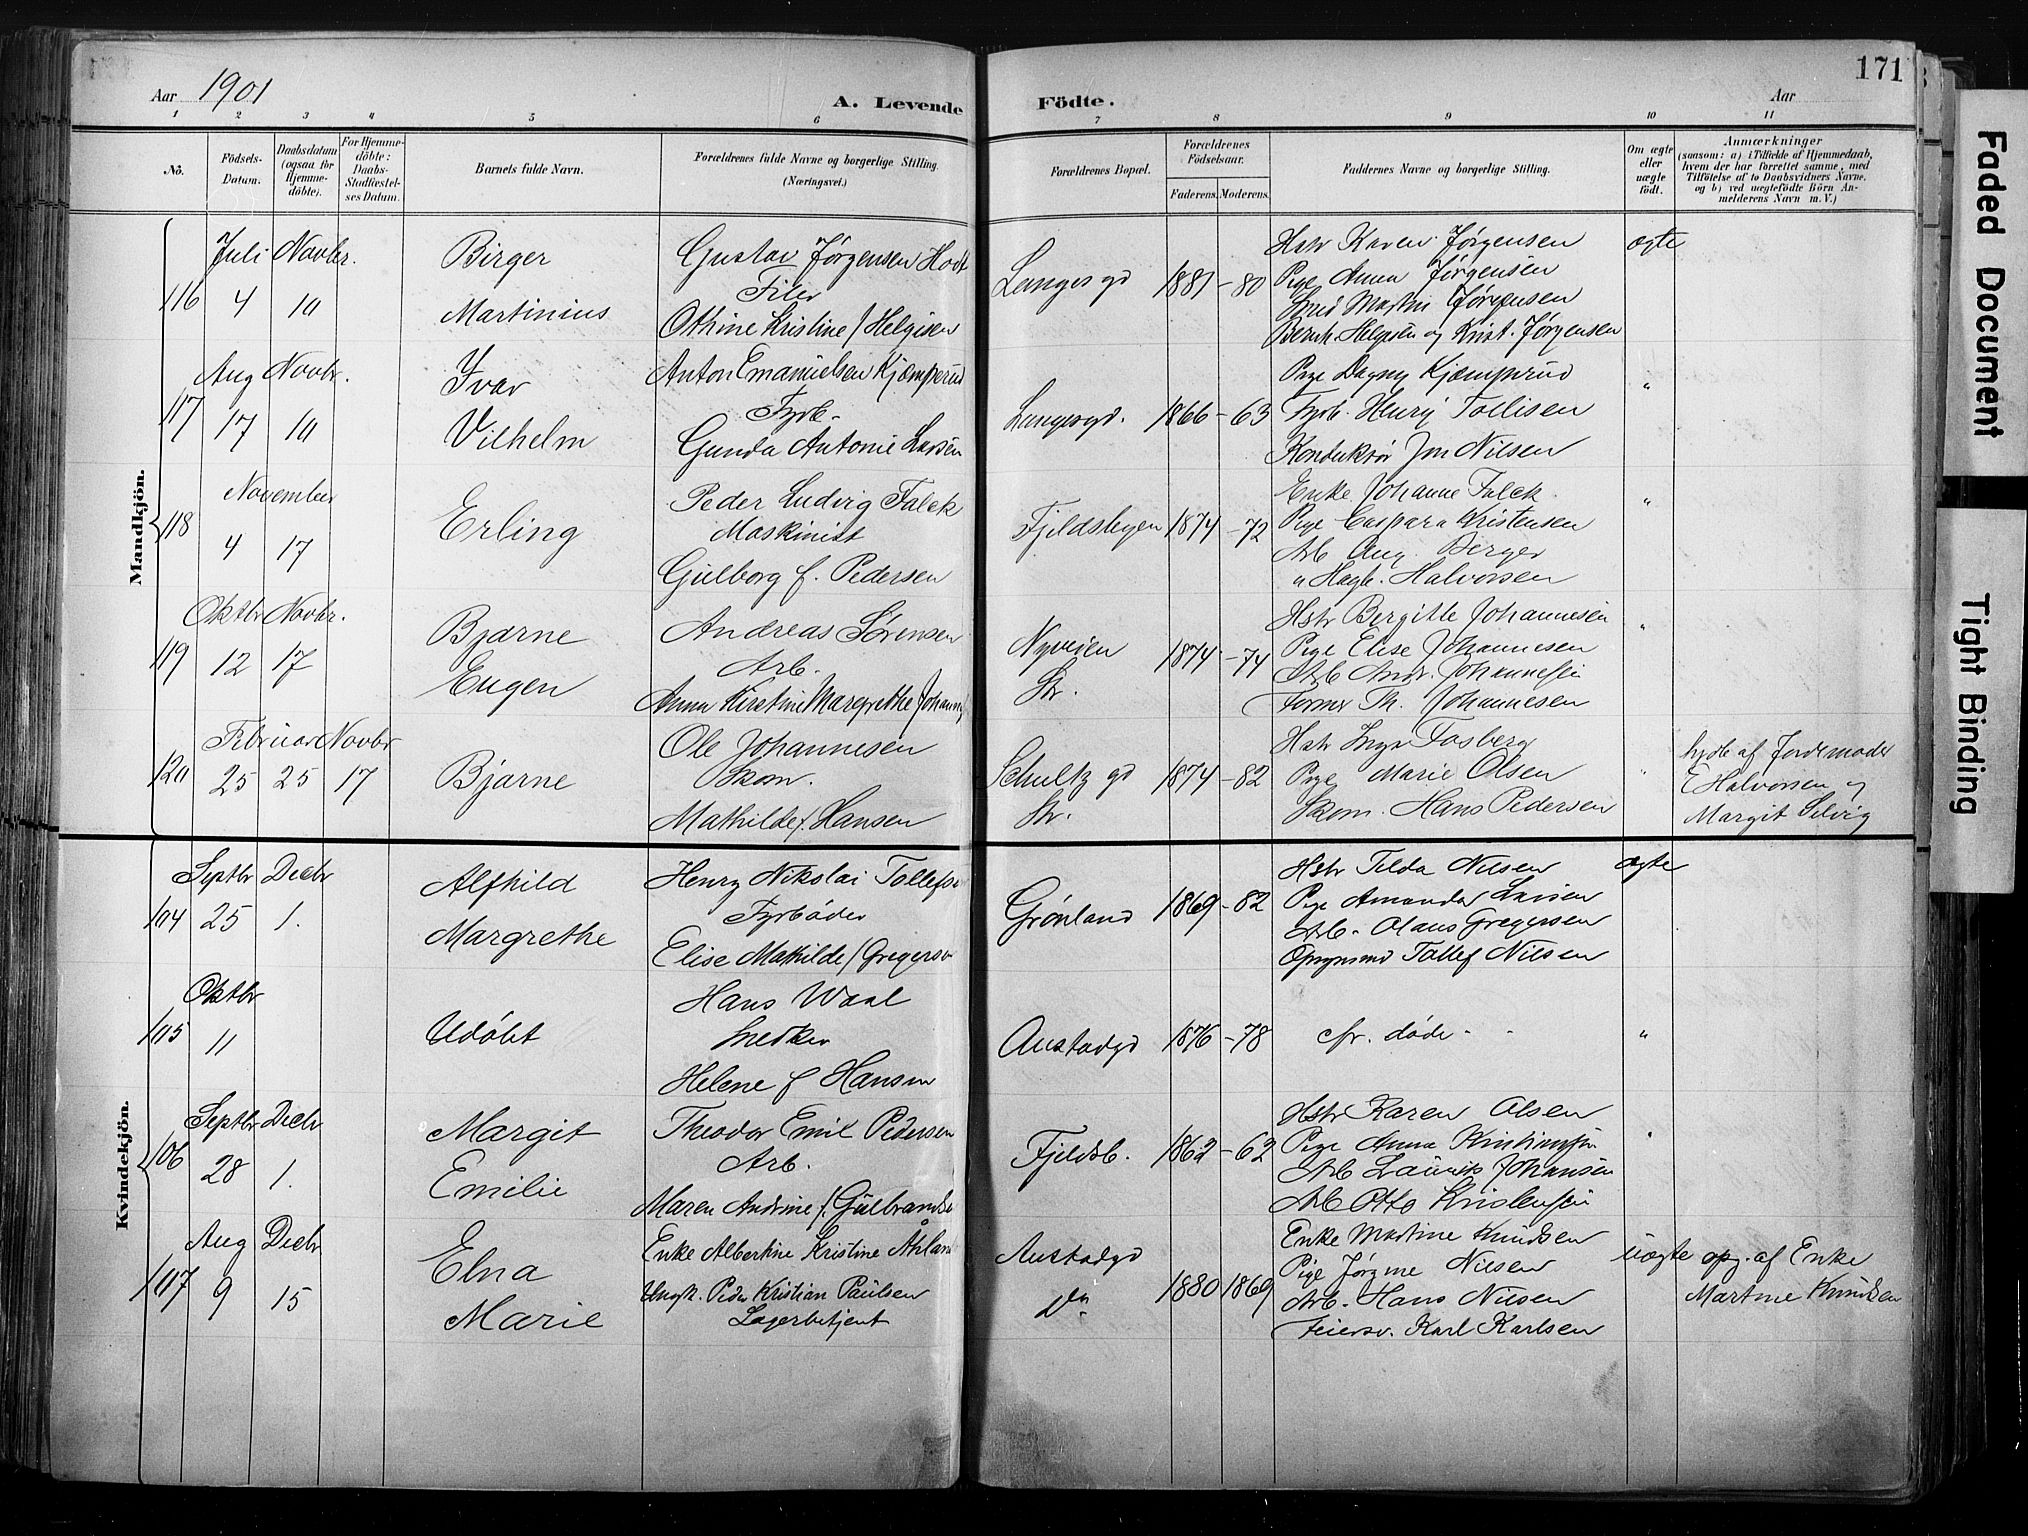 171
Aar 1901
A. Levende Födte.
Aar
1 2 3 4 5 6 7 8 9 10 11
No.
Födsels-Datum.
Daabsdatum (ogsaa for Hjemmedöbte).
For Hjemmedöbte: Daabs-Stadfæstelses Datum.
Barnets fulde Navn.
Forældrenes fulde Navne og borgerlige Stilling.
(Næringsvei.)
Forældrenes Bopæl.
Forældrenes Födselsaar.
Faderens. Moderens.
Faddernes Navne og borgerlige Stilling.
Om ægte eller uægte födt.
Anmærkninger
(saasom: a) i Tilfælde af Hjemmedaab, hvem der har forrettet samme, med Tilföielse af to Daabsvidners Navne, og b) ved uegtefödte Börn Anmelderens Navn m. V.)
Mandkjön.
116
Juli Novbr.
4 10
Birger
Martinius
Gustav Jørgensen Hodt
Filer
Othine Kristine f Helgesen
Langesgd
1881-80
Hstr Karen Jørgensen
Pige Anna Jørgensen
Smed Martin Jørgensen
Bernh. Helgesen og Krist. Jørgensen
ægte
117
Aug Novbr.
17 10
Ivar
Vilhelm
Anton Emanuelsen Kjæmperud
Fyrb.
Gunda Antonie Larsen
Langesgd.
1866-63
Pige Dagny Kjæmprud
Fyrb. Henry Tollisen
Konduktør Jon Nilsen
"
118
November
4 17
Erling
Peder Ludvig Falck
Maskinist
Gulborg f. Pedersen
Fjeldsbyen
1874-72
Enke Johanne Falck
Pige Caspara Kristensen
Arb Aug. Berger
" Hagb. Halvorsen
"
119
Oktbr Novbr.
12 17
Bjarne
Eugen
Andreas Sørensen
Arb.
Anna Kirstine Margrethe
Nyveien
Str.
1874-74
Hstr Bergitte Johannesen
Pige Elise Johannesen
Arb Andr. Johannesen
Former Th. Johannesen
"
120
Februar Novbr
25 25 17
Bjarne
Ole Johannesen
Skom.
Mathilde f. Hansen
Schultz gd
Str.
1874-82
Hstr Inga Fosberg
Pige Marie Olsen
Skom. Hans Pedersen
"
hjdb af Jordemoder
E Halvorsen og
Margit Selvig
Kvindekjön.
104
Septbr Decbr
25 1.
Alfhild
Margrethe
Henry Nikolai
Fyrbøder
Elise Mathilde f
Grønland
1869-82
Hstr Tilda Nilsen
Pige Amanda Larsen
Arb. Olaus Gregersen
Opsynsmd Tollef Nilsen
ægte
105
Oktbr
11
Udöbt
Hans Waal
Snedker
Helene f Hansen
Austadgd
1876-78
cfr. døde
"
106
Septbr Decbr
28 1.
Margit
Emilie
Theodor Emil Pedersen
Arb.
Maren Andrine f.
Fjeldsb.
1862-62
Hstr Karen Olsen
Pige Anna
Arb Lauritz Johansen
Arb Otto
"
107
Aug Decbr
9 15
Elna
Marie
Enke Albertine Kristine
Ungk. Peder Kristian Paulsen
Lagerbetjent
Austadgd
Do
1880 1869
Enke Martine Knudsen
Pige Jørgine Nilsen
Arb. Hans Nilsen
Feiersv. Karl Karlsen
uægte
opg. af Enke
Martine Knudsen
Faded Document
Tight Binding